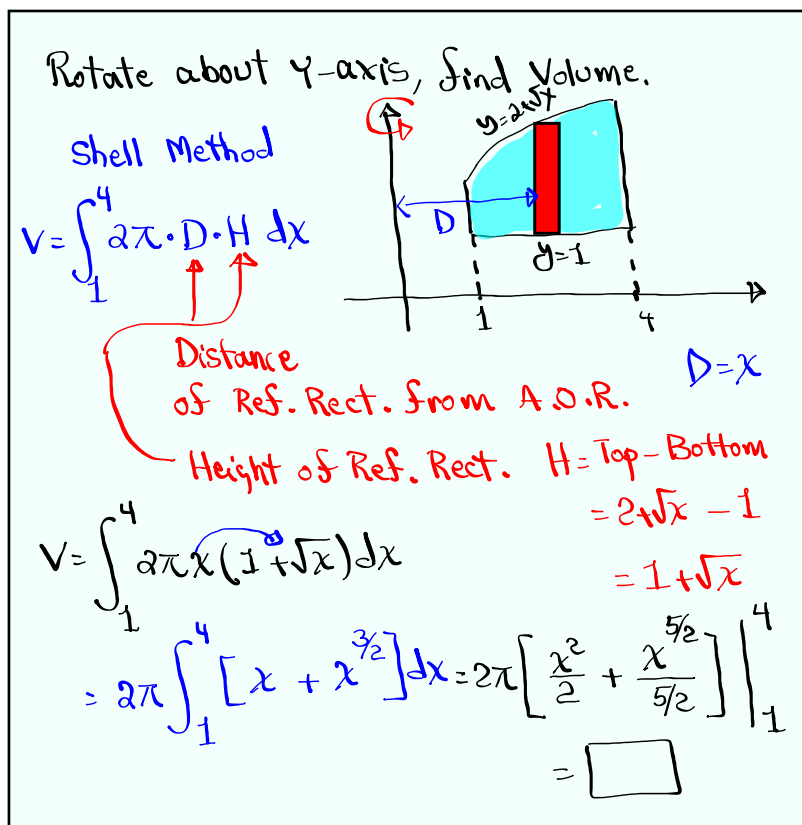 Rotate about y-axis, find Volume.
Shell Method
y=2+√x
V=∫₁⁴ 2π·D·H dx
D
y=1
1
4
Distance
of Ref. Rect. from A.O.R.
D=x
Height of Ref. Rect.
H=Top-Bottom
=2+√x - 1
=1+√x
V=∫₁⁴ 2πx(1+√x)dx
=2π∫₁⁴ [x + x^(3/2)]dx=2π[x²/2 + x^(5/2)/(5/2)]|₁⁴
=